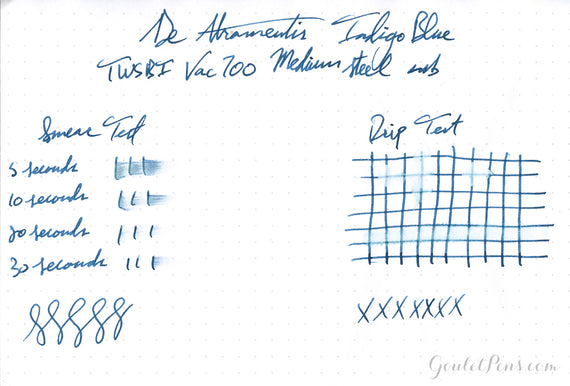 De Atramentis Indigo Blue
TWSBI Vac 700 Medium steel nib
Smear Test
Drip Test
5 seconds
10 seconds
20 seconds
30 seconds
XXXXXXX
GouletPens.com